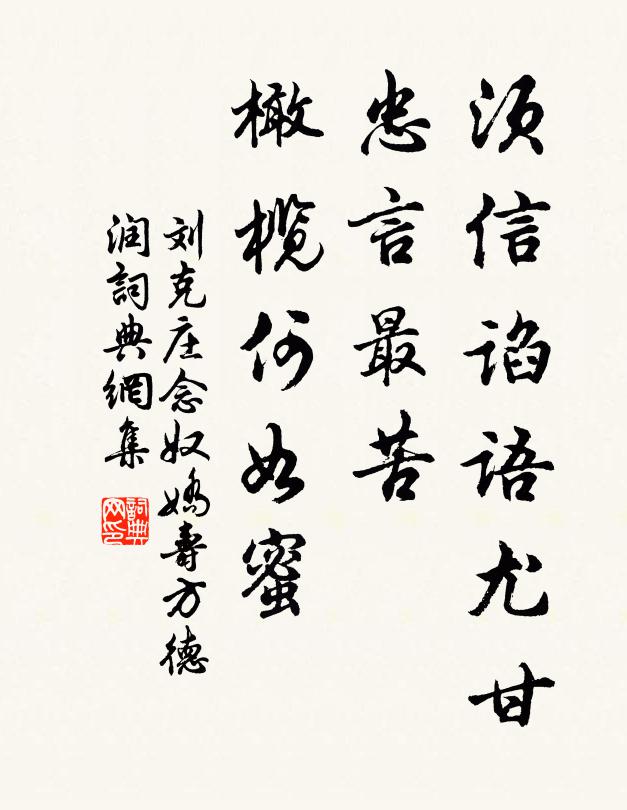 须信谄语尤甘
忠言最苦
橄榄何如蜜
刘克庄念奴娇寿方德
润詞典網集
詞典网印